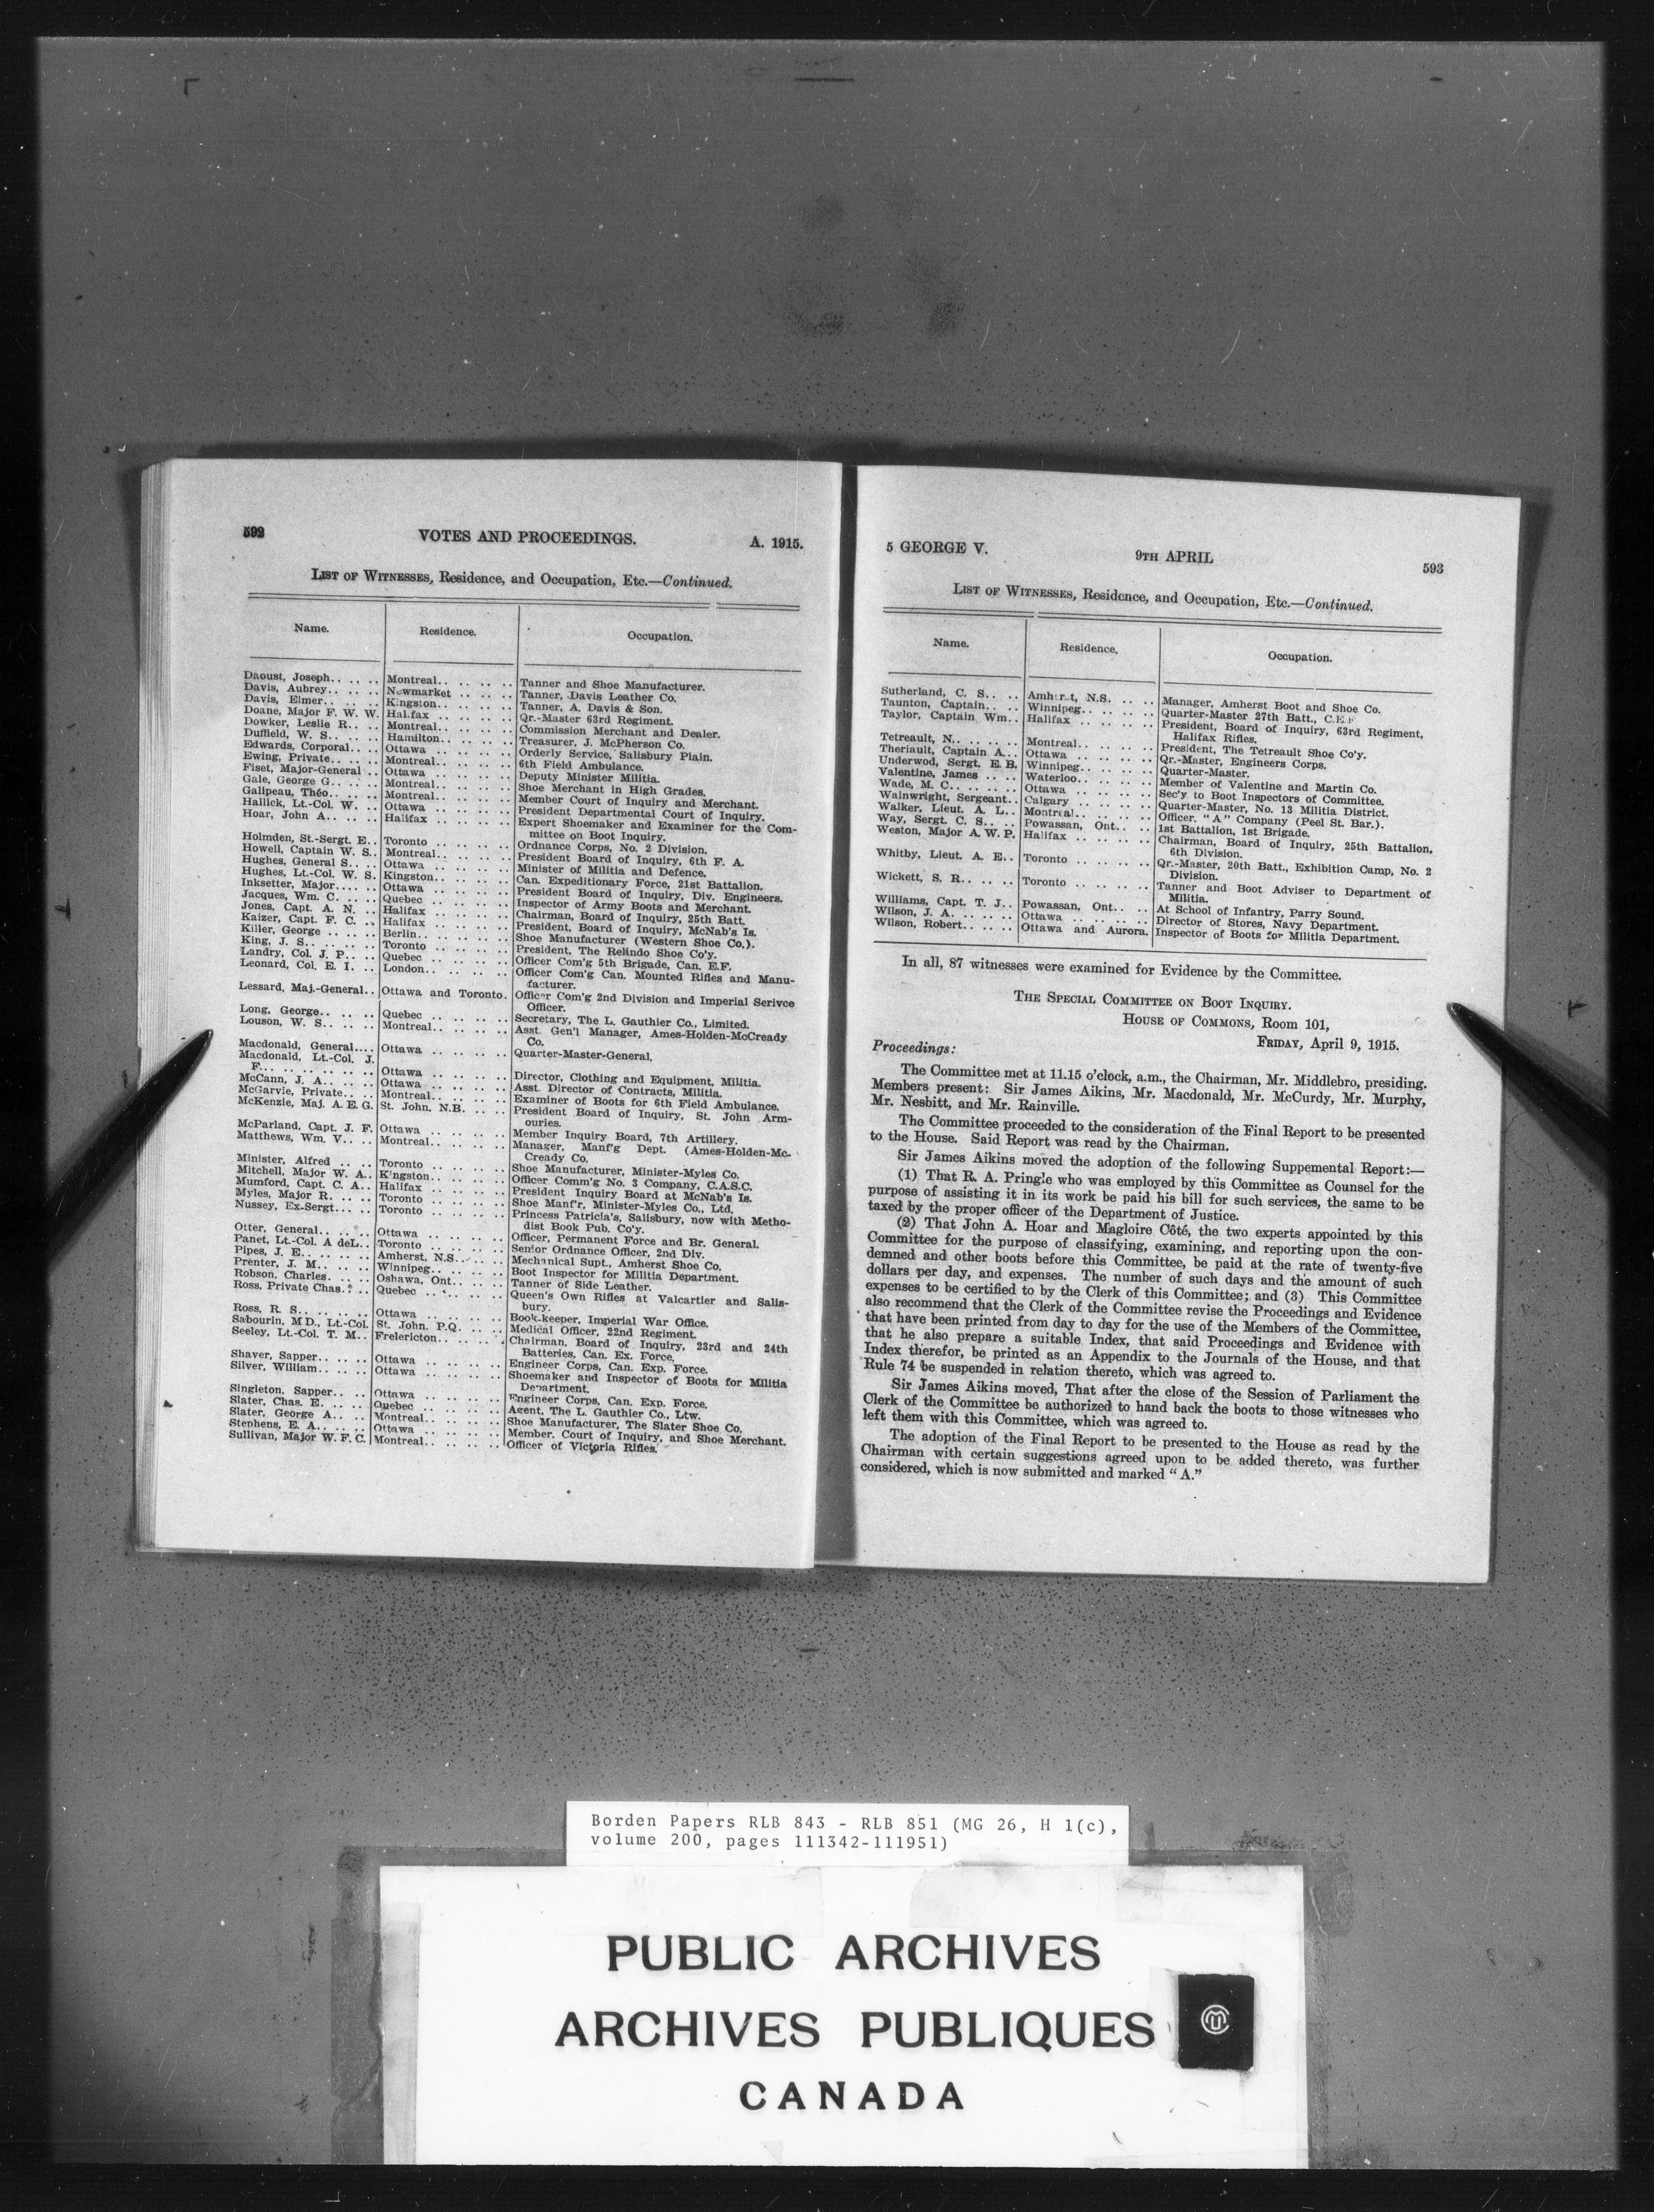 592 VOTES AND PROCEEDINGS. A. 1915.
LIST OF WITNESSES, Residence, and Occupation, Etc.—Continued.
Name. Residence. Occupation.
Daoust, Joseph.. .. .. Montreal.. .. .. .. Tanner and Shoe Manufacturer.
Davis, Aubrey.. .. .. Newmarket .. .. .. Tanner, Davis Leather Co.
Davis, Elmer.. .. .. Kingston.. .. .. .. Tanner, A. Davis & Son.
Doane, Major F. W. W. Halifax .. .. .. .. Qr.-Master 63rd Regiment.
Dowker, Leslie R.. .. Montreal.. .. .. .. Commission Merchant and Dealer.
Duffield, W. S.. .. .. Hamilton.. .. .. .. Treasurer, J. McPherson Co.
Edwards, Corporal.. .. Ottawa .. .. .. .. Orderly Service, Salisbury Plain.
Ewing, Private.. .. .. Montreal.. .. .. .. 6th Field Ambulance.
Fiset, Major-General .. Ottawa .. .. .. .. Deputy Minister Militia.
Gale, George G.. .. .. Montreal.. .. .. .. Shoe Merchant in High Grades.
Galipeau, Théo.. .. .. Montreal.. .. .. .. Member Court of Inquiry and Merchant.
Hallick, Lt.-Col. W. .. Ottawa .. .. .. .. President Departmental Court of Inquiry.
Hoar, John A.. .. .. Halifax .. .. .. .. Expert Shoemaker and Examiner for the Com-
mittee on Boot Inquiry.
Holmden, St.-Sergt. E.. Toronto .. .. .. .. Ordnance Corps, No. 2 Division.
Howell, Captain W. S.. Montreal.. .. .. .. President Board of Inquiry, 6th F. A.
Hughes, General S.. .. Ottawa .. .. .. .. Minister of Militia and Defence.
Hughes, Lt.-Col. W. S. Kingston.. .. .. .. Can. Expeditionary Force, 21st Battalion.
Inksetter, Major.... .. Ottawa .. .. .. .. President Board of Inquiry, Div. Engineers.
Jacques, Wm. C. .. .. Quebec .. .. .. .. Inspector of Army Boots and Merchant.
Jones, Capt. A. N. .. Halifax .. .. .. .. Chairman, Board of Inquiry, 25th Batt.
Kaizer, Capt. F. C. .. Halifax .. .. .. .. President, Board of Inquiry, McNab's Is.
Killer, George .. .. .. Berlin.. .. .. .. .. Shoe Manufacturer (Western Shoe Co.).
King, J. S.. .. .. .. Toronto .. .. .. .. President, The Relindo Shoe Co'y.
Landry, Col. J. P.. .. Quebec .. .. .. .. Officer Com'g 5th Brigade, Can. E.F.
Leonard, Col. E. I. .. London.. .. .. .. Officer Com'g Can. Mounted Rifles and Manu-
facturer.
Lessard, Maj.-General.. Ottawa and Toronto. Officer Com'g 2nd Division and Imperial Serivce
Officer.
Long, George.. .. .. Quebec .. .. .. .. Secretary, The L. Gauthier Co., Limited.
Louson, W. S.. .. .. Montreal.. .. .. .. Asst. Gen'l Manager, Ames-Holden-McCready
Co.
Macdonald, General.... Ottawa .. .. .. .. Quarter-Master-General.
Macdonald, Lt.-Col. J.
F... .. .. .. .. .. Ottawa .. .. .. .. Director, Clothing and Equipment, Militia.
McCann, J. A.. .. .. Ottawa .. .. .. .. Asst. Director of Contracts, Militia.
McGarvie, Private.. .. Montreal.. .. .. .. Examiner of Boots for 6th Field Ambulance.
McKenzie, Maj. A. E. G. St. John. N.B. .. .. President Board of Inquiry, St. John Arm-
ouries.
McParland, Capt. J. F. Ottawa .. .. .. .. Member Inquiry Board, 7th Artillery.
Matthews, Wm. V.. .. Montreal.. .. .. .. Manager, Manf'g Dept. (Ames-Holden-Mc-
Cready Co.
Minister, Alfred .. .. Toronto .. .. .. .. Shoe Manufacturer, Minister-Myles Co.
Mitchell, Major W. A.. Kingston.. .. .. .. Officer Comm'g No. 3 Company, C.A.S.C.
Mumford, Capt. C. A.. Halifax .. .. .. .. President Inquiry Board at McNab's Is.
Myles, Major R. .. .. Toronto .. .. .. .. Shoe Manf'r, Minister-Myles Co., Ltd.
Nussey, Ex-Sergt... .. Toronto .. .. .. .. Princess Patricia's, Salisbury, now with Metho-
dist Book Pub. Co'y.
Otter, General.. .. .. Ottawa .. .. .. .. Officer, Permanent Force and Br. General.
Panet, Lt.-Col. A deL.. Toronto .. .. .. .. Senior Ordnance Officer, 2nd Div.
Pipes, J. E.. .. .. .. Amherst. N.S.. .. .. Mechanical Supt., Amherst Shoe Co.
Prenter, J. M.. .. .. Winnipeg.. .. .. .. Boot Inspector for Militia Department.
Robson, Charles. .. .. Oshawa, Ont.. .. .. Tanner of Side Leather.
Ross, Private Chas.. .. Quebec .. .. .. .. Queen's Own Rifles at Valcartier and Salis-
bury.
Ross, R. S.. .. .. .. Ottawa .. .. .. .. Book-keeper, Imperial War Office.
Sabourin, MD., Lt.-Col. St. John. P.Q. .. .. Medical Officer, 22nd Regiment.
Seeley, Lt.-Col. T. M.. Frelericton.. .. .. .. Chairman, Board of Inquiry, 23rd and 24th
Batteries, Can. Ex. Force.
Shaver, Sapper.. .. .. Ottawa .. .. .. .. Engineer Corps, Can. Exp. Force.
Silver, William.. .. .. Ottawa .. .. .. .. Shoemaker and Inspector of Boots for Militia
Department.
Singleton, Sapper.. .. Ottawa .. .. .. .. Engineer Corps, Can. Exp. Force.
Slater, Chas. E. .. .. Quebec .. .. .. .. Agent, The L. Gauthier Co., Ltw.
Slater, George A.. .. Montreal.. .. .. .. Shoe Manufacturer, The Slater Shoe Co.
Stenhens, E. A.. .. .. Ottawa .. .. .. .. Member, Court of Inquiry, and Shoe Merchant.
Sullivan, Major W. F. C. Montreal.. .. .. .. Officer of Victoria Rifles.
5 GEORGE V. 9TH APRIL 593
LIST OF WITNESSES, Residence, and Occupation, Etc.—Continued.
Name. Residence. Occupation.
Sutherland, C. S.. .. Amherst, N.S. .. .. Manager, Amherst Boot and Shoe Co.
Taunton, Captain.. .. Winnipeg.. .. .. .. Quarter-Master 27th Batt., C.E.F
Taylor, Captain Wm.. Halifax .. .. .. .. President, Board of Inquiry, 63rd Regiment,
Halifax Rifles.
Tetreault, N.. .. .. .. Montreal.. .. .. .. President, The Tetreault Shoe Co'y.
Theriault, Captain A.. Ottawa .. .. .. .. Qr.-Master, Engineers Corps.
Underwod, Sergt. E. B. Winnipeg.. .. .. .. Quarter-Master.
Valentine, James .. .. Waterloo.. .. .. .. Member of Valentine and Martin Co.
Wade, M. C.. .. .. .. Ottawa .. .. .. .. Sec'y to Boot Inspectors of Committee.
Wainwright, Sergeant.. Calgary .. .. .. .. Quarter-Master, No. 13 Militia District.
Walker, Lieut. A. L.. Montreal.. .. .. .. Officer, "A" Company (Peel St. Bar.).
Way, Sergt. C. S.. .. Powassan, Ont.. .. 1st Battalion, 1st Brigade.
Weston, Major A. W. P. Halifax .. .. .. .. Chairman, Board of Inquiry, 25th Battalion,
6th Division.
Whitby, Lieut. A. E.. Toronto .. .. .. .. Qr.-Master, 20th Batt., Exhibition Camp, No. 2
Division.
Wickett, S. R.. .. .. Toronto .. .. .. .. Tanner and Boot Adviser to Department of
Militia.
Williams, Capt. T. J.. Powassan, Ont.. .. At School of Infantry, Parry Sound.
Wilson, J. A. .. .. .. Ottawa .. .. .. .. Director of Stores, Navy Department.
Wilson, Robert.. .. .. Ottawa and Aurora. Inspector of Boots for Militia Department.
In all, 87 witnesses were examined for Evidence by the Committee.
THE SPECIAL COMMITTEE ON BOOT INQUIRY.
HOUSE OF COMMONS, Room 101,
FRIDAY, April 9, 1915.
Proceedings:
The Committee met at 11.15 o'clock, a.m., the Chairman, Mr. Middlebro, presiding.
Members present: Sir James Aikins, Mr. Macdonald, Mr. McCurdy, Mr. Murphy,
Mr. Nesbitt, and Mr. Rainville.
The Committee proceeded to the consideration of the Final Report to be presented
to the House. Said Report was read by the Chairman.
Sir James Aikins moved the adoption of the following Suppemental Report:—
(1) That R. A. Pringle who was employed by this Committee as Counsel for the
purpose of assisting it in its work be paid his bill for such services, the same to be
taxed by the proper officer of the Department of Justice.
(2) That John A. Hoar and Magloire Côté, the two experts appointed by this
Committee for the purpose of classifying, examining, and reporting upon the con-
demned and other boots before this Committee, be paid at the rate of twenty-five
dollars per day, and expenses. The number of such days and the amount of such
expenses to be certified to by the Clerk of this Committee; and (3) This Committee
also recommend that the Clerk of the Committee revise the Proceedings and Evidence
that have been printed from day to day for the use of the Members of the Committee,
that he also prepare a suitable Index, that said Proceedings and Evidence with
Index therefor, be printed as an Appendix to the Journals of the House, and that
Rule 74 be suspended in relation thereto, which was agreed to.
Sir James Aikins moved, That after the close of the Session of Parliament the
Clerk of the Committee be authorized to hand back the boots to those witnesses who
left them with this Committee, which was agreed to.
The adoption of the Final Report to be presented to the House as read by the
Chairman with certain suggestions agreed upon to be added thereto, was further
considered, which is now submitted and marked "A."
Borden Papers RLB 843 - RLB 851 (MG 26, H 1(c),
volume 200, pages 111342-111951)
PUBLIC ARCHIVES
ARCHIVES PUBLIQUES
CANADA